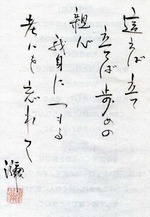 這えば立て
立てば歩めの
親心
我身につもる
老いも忘れて